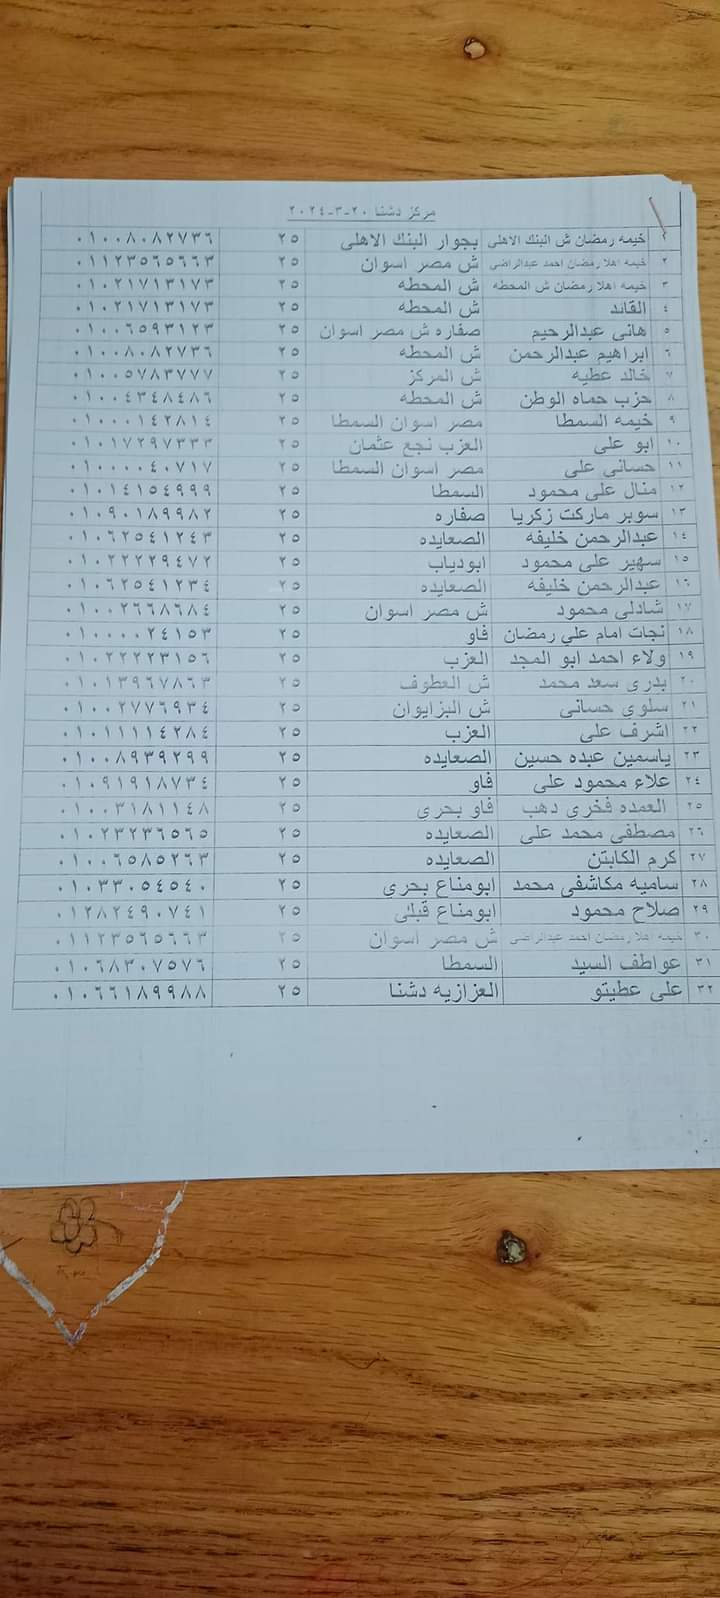 مركز دشنا ٢٠-٣-٢٠٢٤
١ خيمه رمضان ش البنك الاهلى بجوار البنك الاهلى ٢٥ ٠١٠٠٨٠٨٢٧٣٦
٢ خيمه اهلا رمضان احمد عبدالراضى ش مصر اسوان ٢٥ ٠١١٢٣٥٦٥٦٦٣
٣ خيمه اهلا رمضان ش المحطه ش المحطه ٢٥ ٠١٠٢١٧١٣١٧٣
٤ القائد ش المحطه ٢٥ ٠١٠٢١٧١٣١٧٣
٥ هانى عبدالرحيم صفاره ش مصر اسوان ٢٥ ٠١٠٠٦٥٩٣١٢٣
٦ ابراهيم عبدالرحمن ش المحطه ٢٥ ٠١٠٠٨٠٨٢٧٣٦
٧ خالد عطيه ش المركز ٢٥ ٠١٠٠٥٧٨٣٧٧٧
٨ حزب حماه الوطن ش المحطه ٢٥ ٠١٠٠٤٣٤٨٤٨٦
٩ خيمه السمطا مصر اسوان السمطا ٢٥ ٠١٠٠٠١٤٢٨١٤
١٠ ابو على العزب نجع عثمان ٢٥ ٠١٠١٧٢٩٧٣٣٣
١١ حسانى على مصر اسوان السمطا ٢٥ ٠١٠٠٠٠٤٠٧١٧
١٢ منال على محمود السمطا ٢٥ ٠١٠١٤١٥٤٩٩٩
١٣ سوبر ماركت زكريا صفاره ٢٥ ٠١٠٩٠١٨٩٩٨٢
١٤ عبدالرحمن خليفه الصعايده ٢٥ ٠١٠٦٢٥٤١٢٤٣
١٥ سهير على محمود ابودياب ٢٥ ٠١٠٢٢٢٢٩٤٧٢
١٦ عبدالرحمن خليفه الصعايده ٢٥ ٠١٠٦٢٥٤١٢٣٤
١٧ شادلى محمود ش مصر اسوان ٢٥ ٠١٠٠٢٦٦٨٦٨٤
١٨ نجات امام علي رمضان فاو ٢٥ ٠١٠٠٠٠٢٤١٥٣
١٩ ولاء احمد ابو المجد العزب ٢٥ ٠١٠٢٢٢٢٣١٥٦
٢٠ بدرى سعد محمد ش العطوف ٢٥ ٠١٠١٣٩٦٧٨٦٣
٢١ سلوى حسانى ش البزايوان ٢٥ ٠١٠٠٢٧٧٦٩٣٤
٢٢ اشرف على العزب ٢٥ ٠١٠١١١١٤٢٨٤
٢٣ ياسمين عبده حسين الصعايده ٢٥ ٠١٠٠٨٩٣٩٢٩٩
٢٤ علاء محمود على فاو ٢٥ ٠١٠٩١٩١٨٧٣٤
٢٥ العمده فخرى دهب فاو بحرى ٢٥ ٠١٠٠٣١٨١١٤٨
٢٦ مصطفى محمد على الصعايده ٢٥ ٠١٠٢٣٢٣٦٥٦٥
٢٧ كرم الكابتن الصعايده ٢٥ ٠١٠٠٦٥٨٥٢٦٣
٢٨ ساميه مكاشفى محمد ابومناع بحرى ٢٥ ٠١٠٣٣٠٥٤٥٤٠
٢٩ صلاح محمود ابومناع قبلى ٢٥ ٠١٢٨٢٤٩٠٧٤١
٣٠ خيمه اهلا رمضان احمد عبدالراضى ش مصر اسوان ٢٥ ٠١١٢٣٥٦٥٦٦٣
٣١ عواطف السيد السمطا ٢٥ ٠١٠٦٨٣٠٧٥٧٦
٣٢ على عطيتو العزازيه دشنا ٢٥ ٠١٠٦٦١٨٩٩٨٨